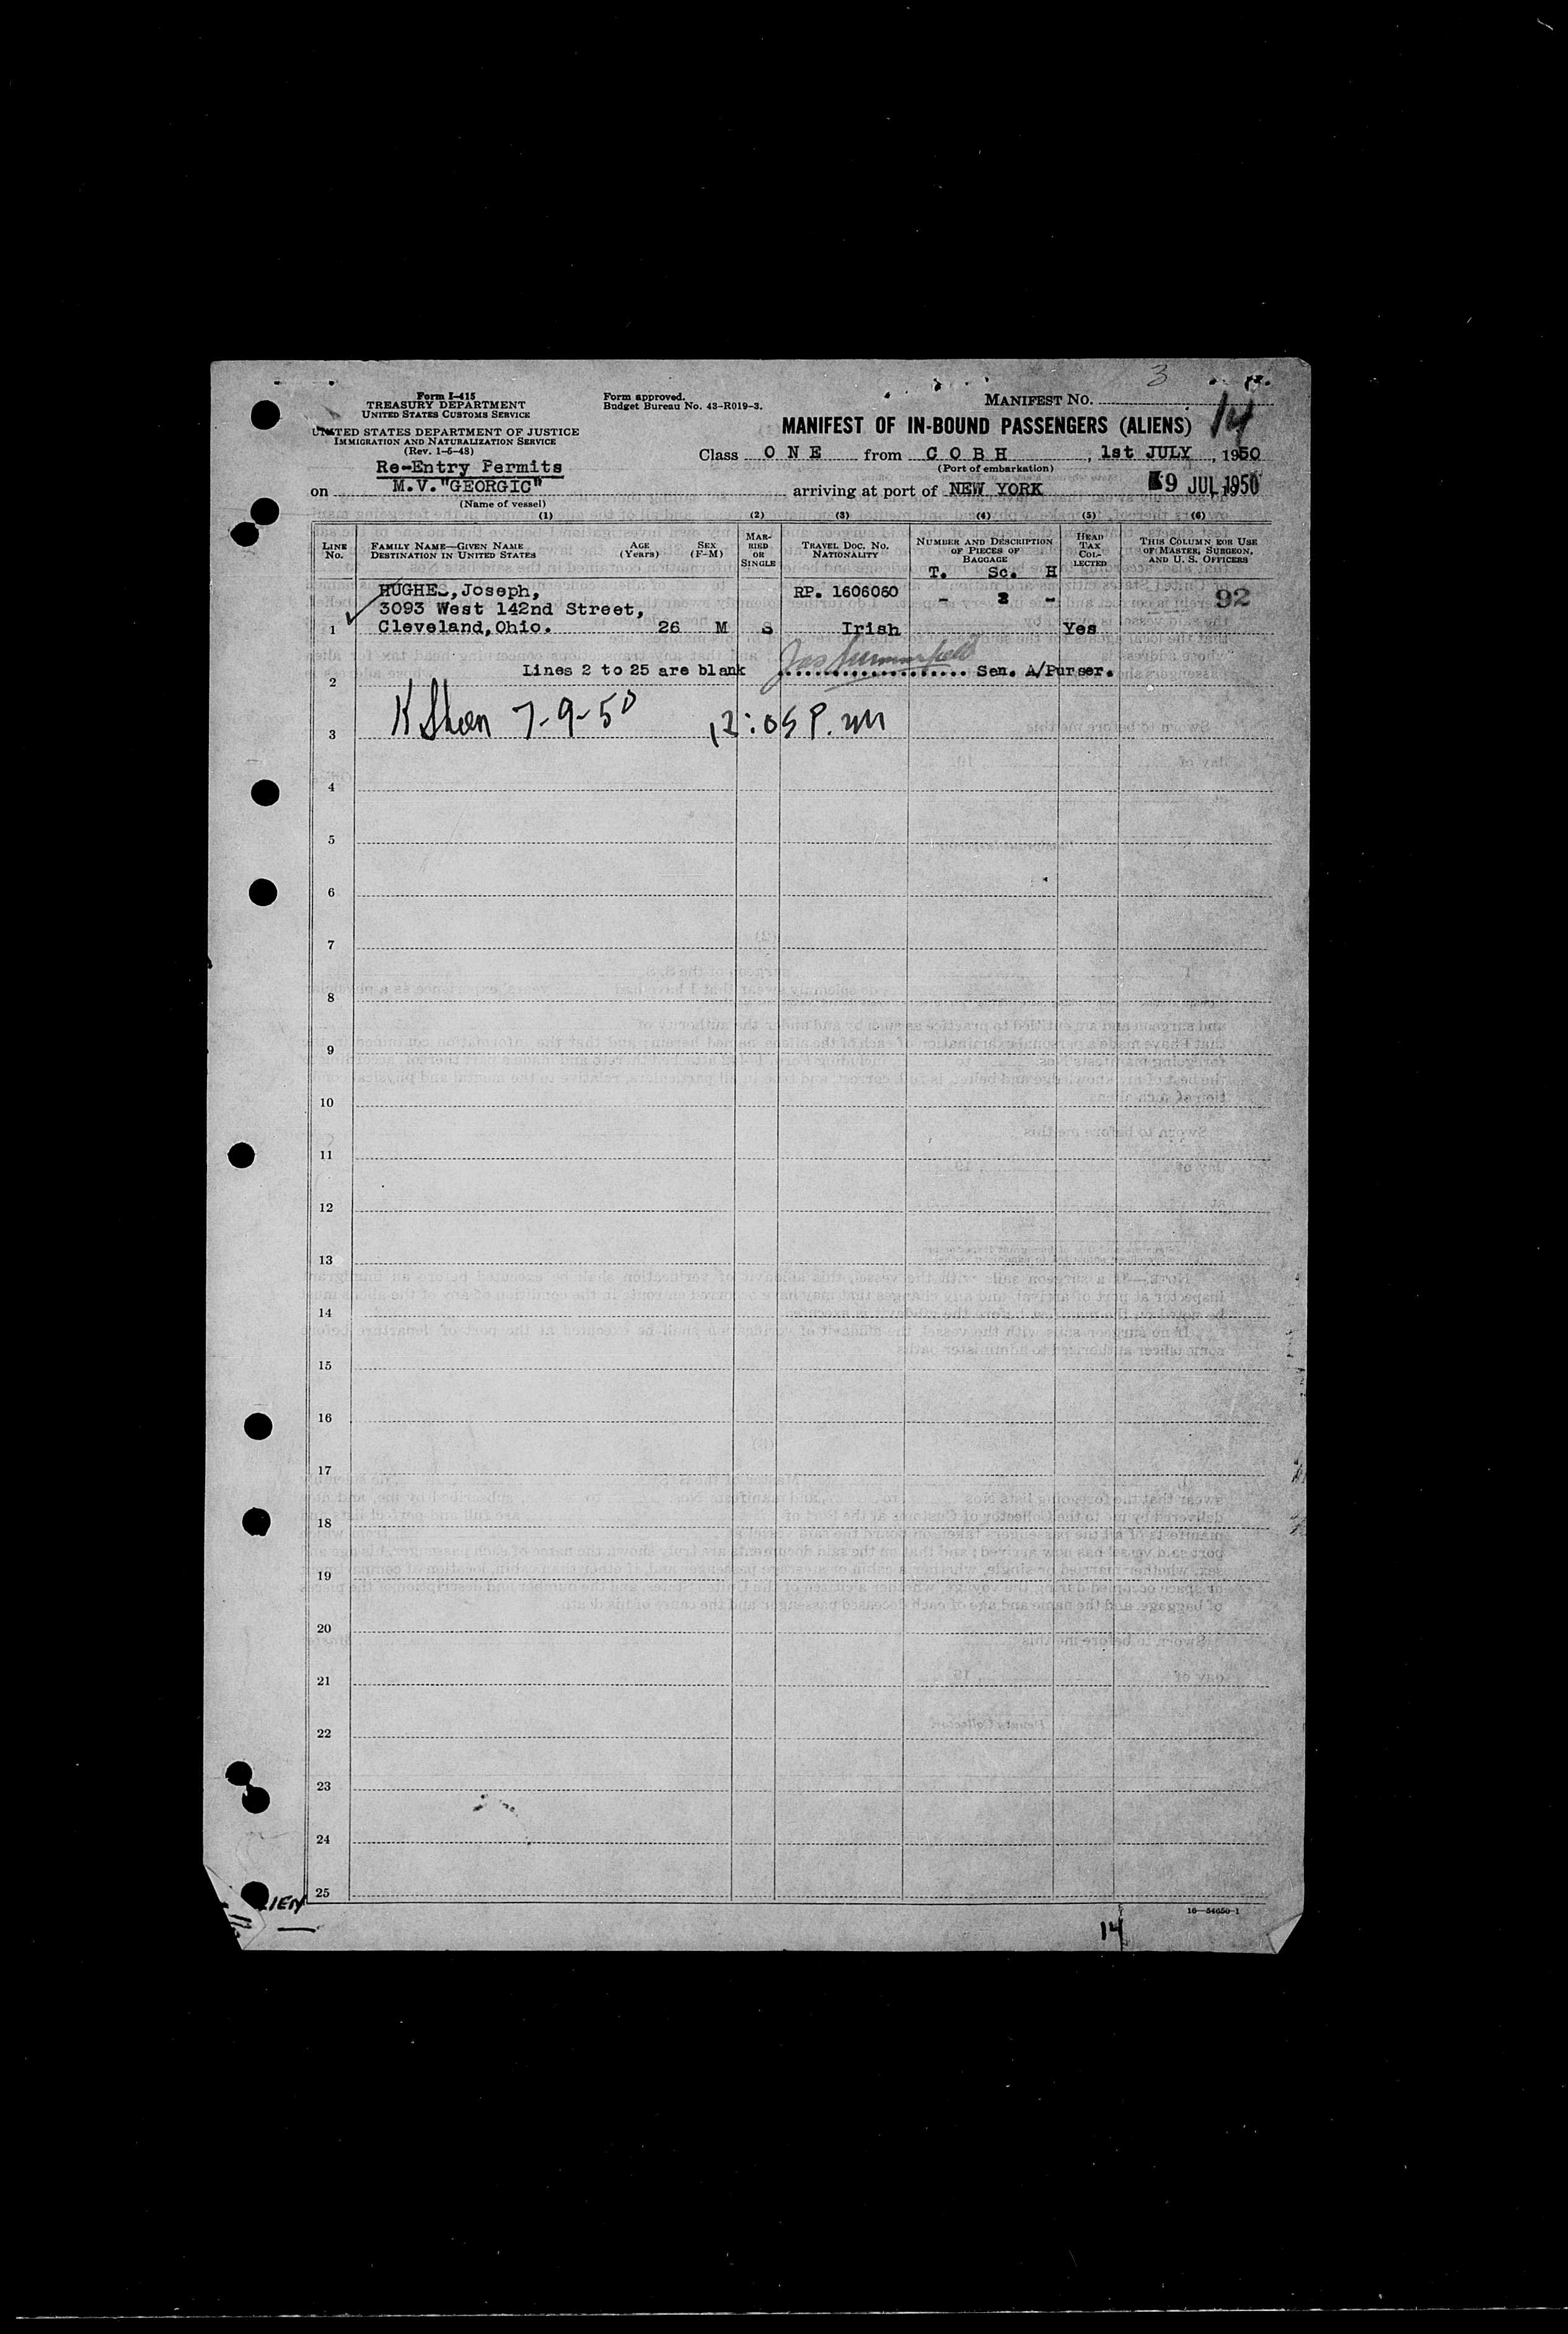 3
Form I-415
TREASURY DEPARTMENT
UNITED STATES CUSTOMS SERVICE
UNITED STATES DEPARTMENT OF JUSTICE
IMMIGRATION AND NATURALIZATION SERVICE
(Rev. 1-6-48)
Form approved.
Budget Bureau No. 43-R019-3.
MANIFEST NO.
14
MANIFEST OF IN-BOUND PASSENGERS (ALIENS)
Class O N E from C O B H, 1st JULY, 1950
(Port of embarkation)
Re-Entry Permits
on M.V."GEORGIC" arriving at port of NEW YORK 9 JUL 1950
(Name of vessel)
(1) (2) (3) (4) (5) (6)
LINE No. FAMILY NAME—GIVEN NAME DESTINATION IN UNITED STATES AGE (Years) SEX (F-M) MARRIED OR SINGLE TRAVEL DOC. NO. NATIONALITY NUMBER AND DESCRIPTION OF PIECES OF BAGGAGE HEAD TAX COLLECTED THIS COLUMN FOR USE OF MASTER, SURGEON, AND U. S. OFFICERS
T. Sc. H
HUGHES, Joseph, RP. 1606060 - - 92
3093 West 142nd Street,
1 Cleveland, Ohio. 26 M S Irish Yes
Lines 2 to 25 are blank Sen. A/Purser.
2
K Shen 7-9-50 12:05 P.M
3
4
5
6
7
8
9
10
11
12
13
14
15
16
17
18
19
20
21
22
23
24
25
14
16—54650-1